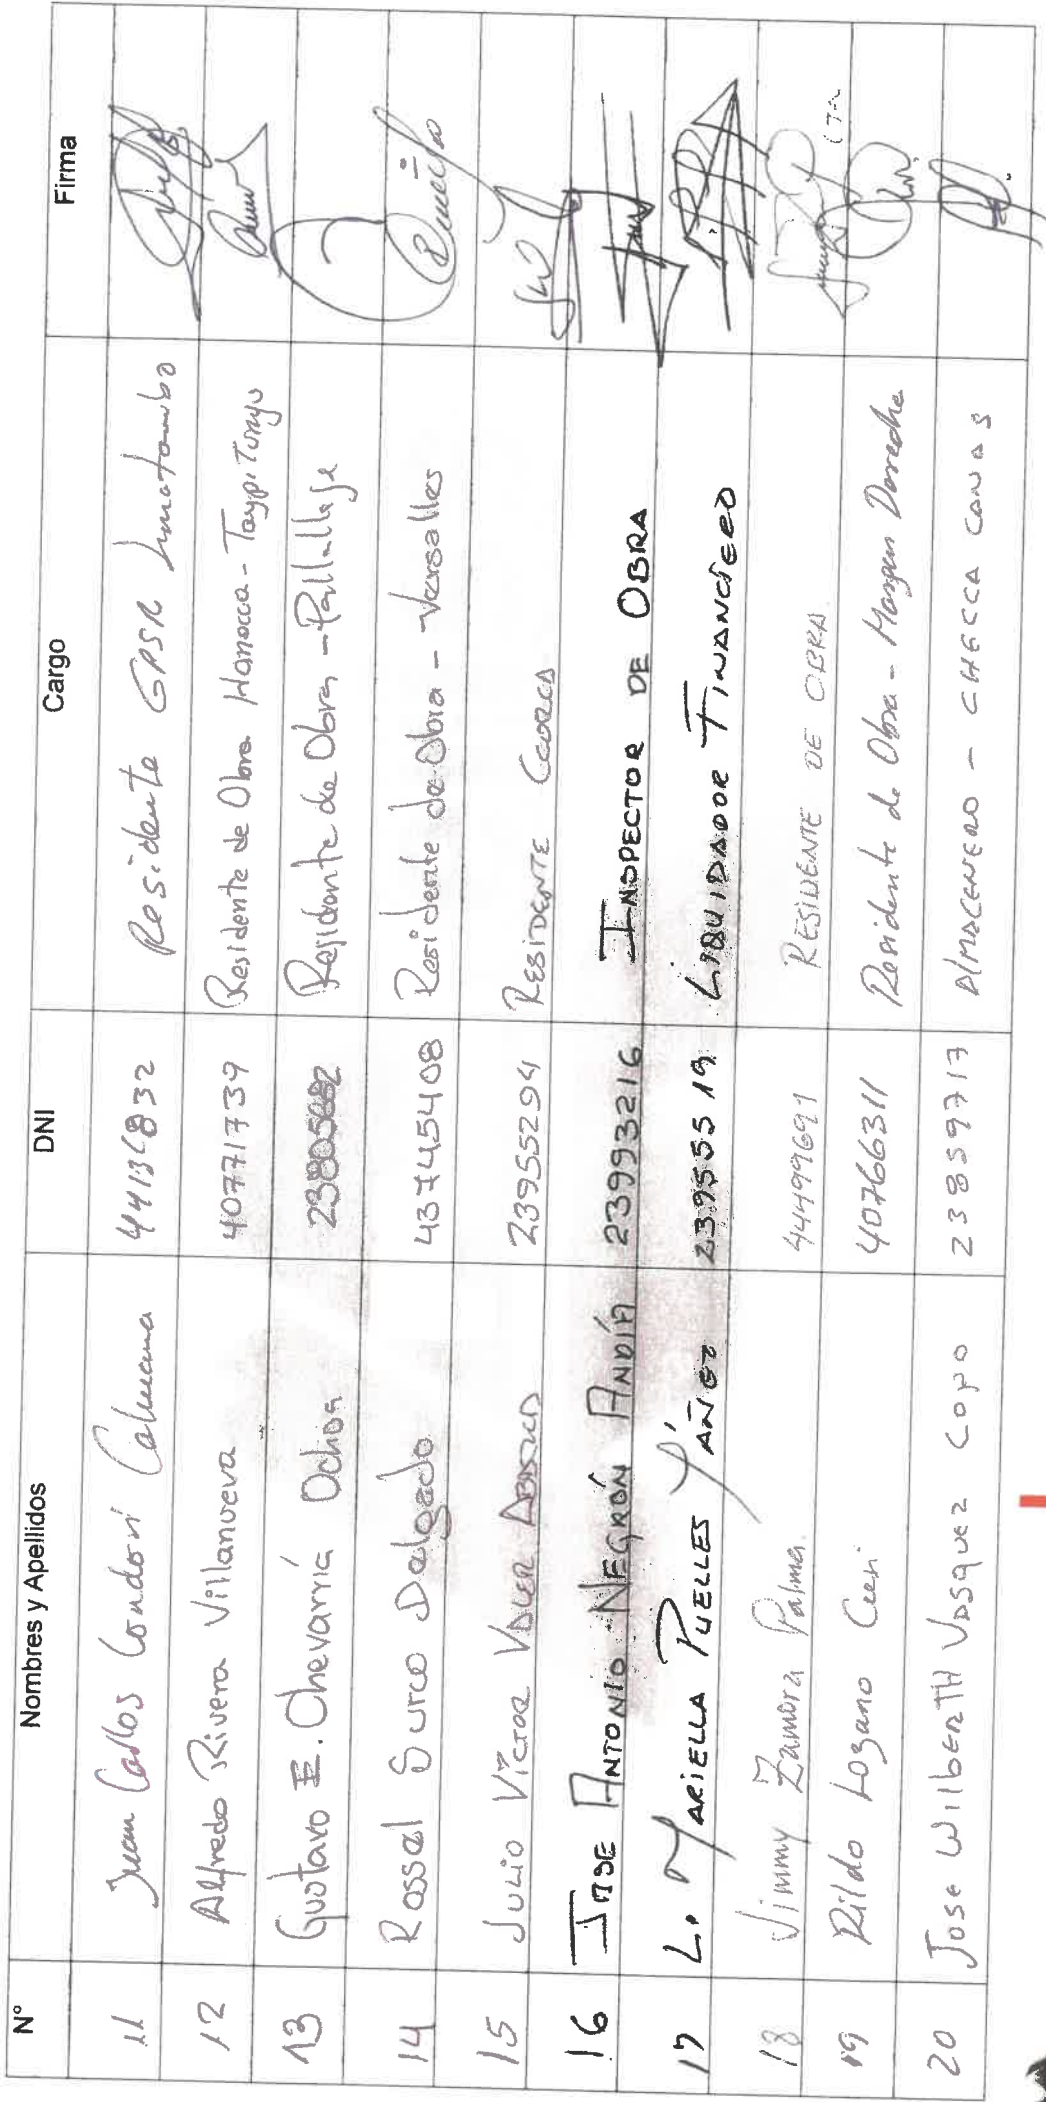 N° Nombres y Apellidos DNI Cargo Firma
11 Juan Carlos Condori 4413 832 Residente GPSR
12 Alfredo Rivera Villanueva 40771739 Residente de Obra Hanocca - Taypitunga
13 Gustavo E. Chevarría Ochoa Residente de Obra - Pallallaje
14 Rossel Surco Delgado 43745408 Residente de Obra - Versalles
15 JULIO VÍCTOR 23955294 RESIDENTE CCORCA
16 JOSE ANTONIO NEGRÓN ANDÍA 23993216 INSPECTOR DE OBRA
17 L. MARIELLA PUELLES YÁÑEZ 23955519 LIQUIDADOR FINANCIERO
18 Jimmy Zamora Palma 44499691 RESIDENTE DE OBRA
19 Rildo Lozano 40766311 Residente de Obra - Margen Derecha
20 Jose WILBERTH VASQUEZ COPO 23859717 ALMACENERO - CHECCA CANAS